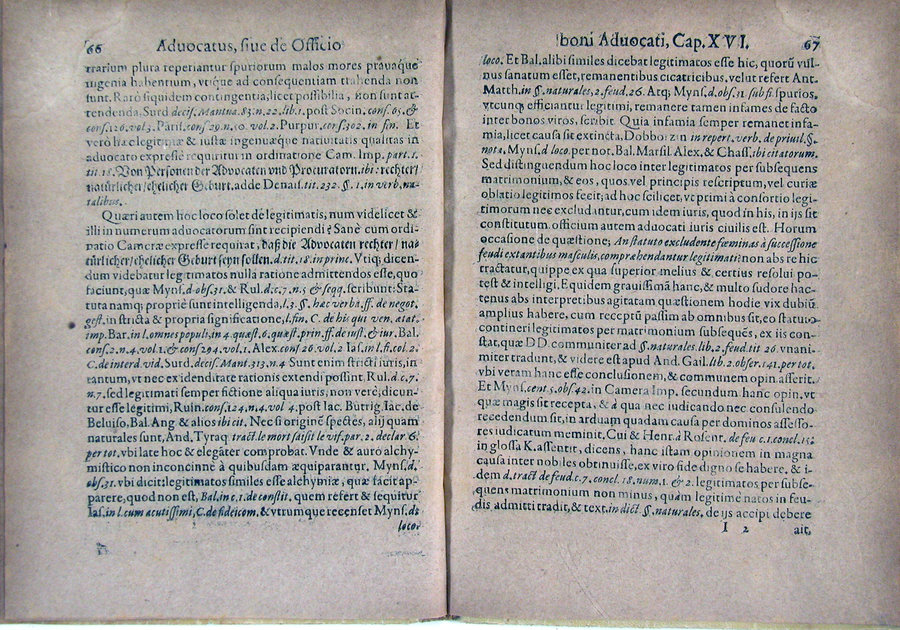 66 Advocatus, siue de Officio
trarium plura reperiantur spuriorum malos mores pravaque
ingenia habentium, vtique ad consequentiam trahenda non
sunt. Rarò siquidem contingentia, licet possibilia, non sunt at-
tendenda. Surd decis. Mantua. 83. n. 22. lib. 1. post Socin. cons. 65. &
cons. 126. vol. 3. Paris. cons. 29. n. 10. vol. 2. Purpur. cons. 302. in fin. Et
verò hæc legitimæ & iustæ ingenuæque natiuitatis qualitas in
aduocato expressè requiritur in ordinatione Cam. Imp. part. 1.
tit. 18. Von Personen der Advocaten vnd Procuratorn. ibi: rechter/
natürlicher/ ehelicher Geburt. adde Denais. tit. 232. §. 1. in verb. na-
talibus.
Quæri autem hoc loco solet de legitimatis, num videlicet &
illi in numerum aduocatorum sint recipiendi? Sanè cum ordi-
natio Cameræ expresse requirat, daß die Advocaten rechter/ na-
türlicher/ ehelicher Geburt seyn sollen. d. tit. 18. in princ. Vtiq; dicen-
dum videbatur legitimatos nulla ratione admittendos esse, quo
faciunt, quæ Myns. d obs. 31. & Rul. d. c. 7. n. 5 & seqq. scribunt: Sta-
tuta namq; propriè sunt intelligenda, l. 3. §. hæc verba. ff. de negot.
gest. in stricta & propria significatione, l. fin. C. de his qui ven. ætat.
imp. Bar. in l. omnes populi, in 4. quæst. 6. quæst. prin. ff. de iust. & iur. Bal.
cons. 2. n. 4. vol. 1. & cons 294. vol. 1. Alex. cons. 26. vol. 2 Ias. in l. fi. col. 2.
C. de interd. vid. Surd. decis. Mant. 313. n. 4 Sunt enim stricti iuris, in
tantum, vt nec ex idenditate rationis extendi possint. Rul. d. c. 7.
n. 7. sed legitimati semper fictione aliqua iuris, non verè, dicun-
tur esse legitimi, Ruin. cons. 124. n. 4. vol 4. post Iac. Buttrig. Iac. de
Beluiso, Bal. Ang & alios ibi cit. Nec si originē spectes, alij quam
naturales sunt, And, Tyraq tract. le mort saisit le vif. par. 2. declar 6.
per tot. vbi late hoc & elegāter comprobat. Vnde & auro alchy-
mistico non inconcinnè à quibusdam æquiparantur, Myns. d.
obs. 31. vbi dicit: legitimatos similes esse alchymiæ, quæ facit ap-
parere, quod non est, Bal. in c. 1. de constit. quem refert & sequitur
Ias. in l. cum acutissimi, C. de fideicom. & vtrumque recenset Myns. d.
loco.
boni Aduocati, Cap. XVI. 67
loco. Et Bal. alibi similes dicebat legitimatos esse hic, quorū vul-
nus sanatum esset, remanentibus cicatricibus, velut refert Ant.
Matth. in §. naturales, 2. feud. 26. Atq; Myns. d. obs. 11. sub fi. spurios,
vtcunq; efficiantur legitimi, remanere tamen infames de facto
inter bonos viros, scribit. Quia infamia semper remanet infa-
mia, licet causa sit extincta, Dobbo zin. in repert. verb. de privil. §.
nota, Myns. d. loco. per not. Bal. Marsil. Alex. & Chass. ibi citatorum.
Sed distinguendum hoc loco inter legitimatos per subsequens
matrimonium, & eos, quos vel principis rescriptum, vel curiæ
oblatio legitimos fecit; ad hoc scilicet, vt primi à consortio legi-
timorum nec excludantur, cum idem iuris, quod in his, in ijs sit
constitutum. officium autem aduocati iuris ciuilis est. Horum
occasione de quæstione; An statuto excludente fœminas à successione
feudi extantibus masculis, comprehendantur legitimati: non abs re hic
tractatur, quippe ex qua superior melius & certius resolui po-
test & intelligi. Equidem grauissimā hanc, & multo sudore hac-
tenus abs interpretibus agitatam quæstionem hodie vix dubiū
amplius habere, cum receptū passim ab omnibus sit, eo statuto
contineri legitimatos per matrimonium subsequēs, ex iis con-
stat, quæ DD. communiter ad §. naturales. lib. 2. feud. tit 26. vnani-
miter tradunt, & videre est apud And. Gail. lib. 2. obser. 141. per tot.
vbi veram hanc esse conclusionem, & communem opin. asserit.
Et Myns. cent. 5. obs. 42. in Camera Imp. secundum hanc opin. vt
quæ magis sit recepta, & à qua nec iudicando nec consulendo
recedendum sit, in arduam quadam causa per dominos assesso-
res iudicatum meminit, Cui & Henr. à Rosent. de feu c. 1. concl. 15.
in glossa K. assentit, dicens, hanc istam opinionem in magna
causa inter nobiles obtinuisse, ex viro fide digno se habere. & i-
dem d. tract de feud. c. 7. concl. 18. num. 1. & 2. legitimos per subse-
quens matrimonium non minus, quàm legitimè natos in feu-
dis admitti tradit, & text. in dict. §. naturales. de ijs accipi debere
I 2 ait,